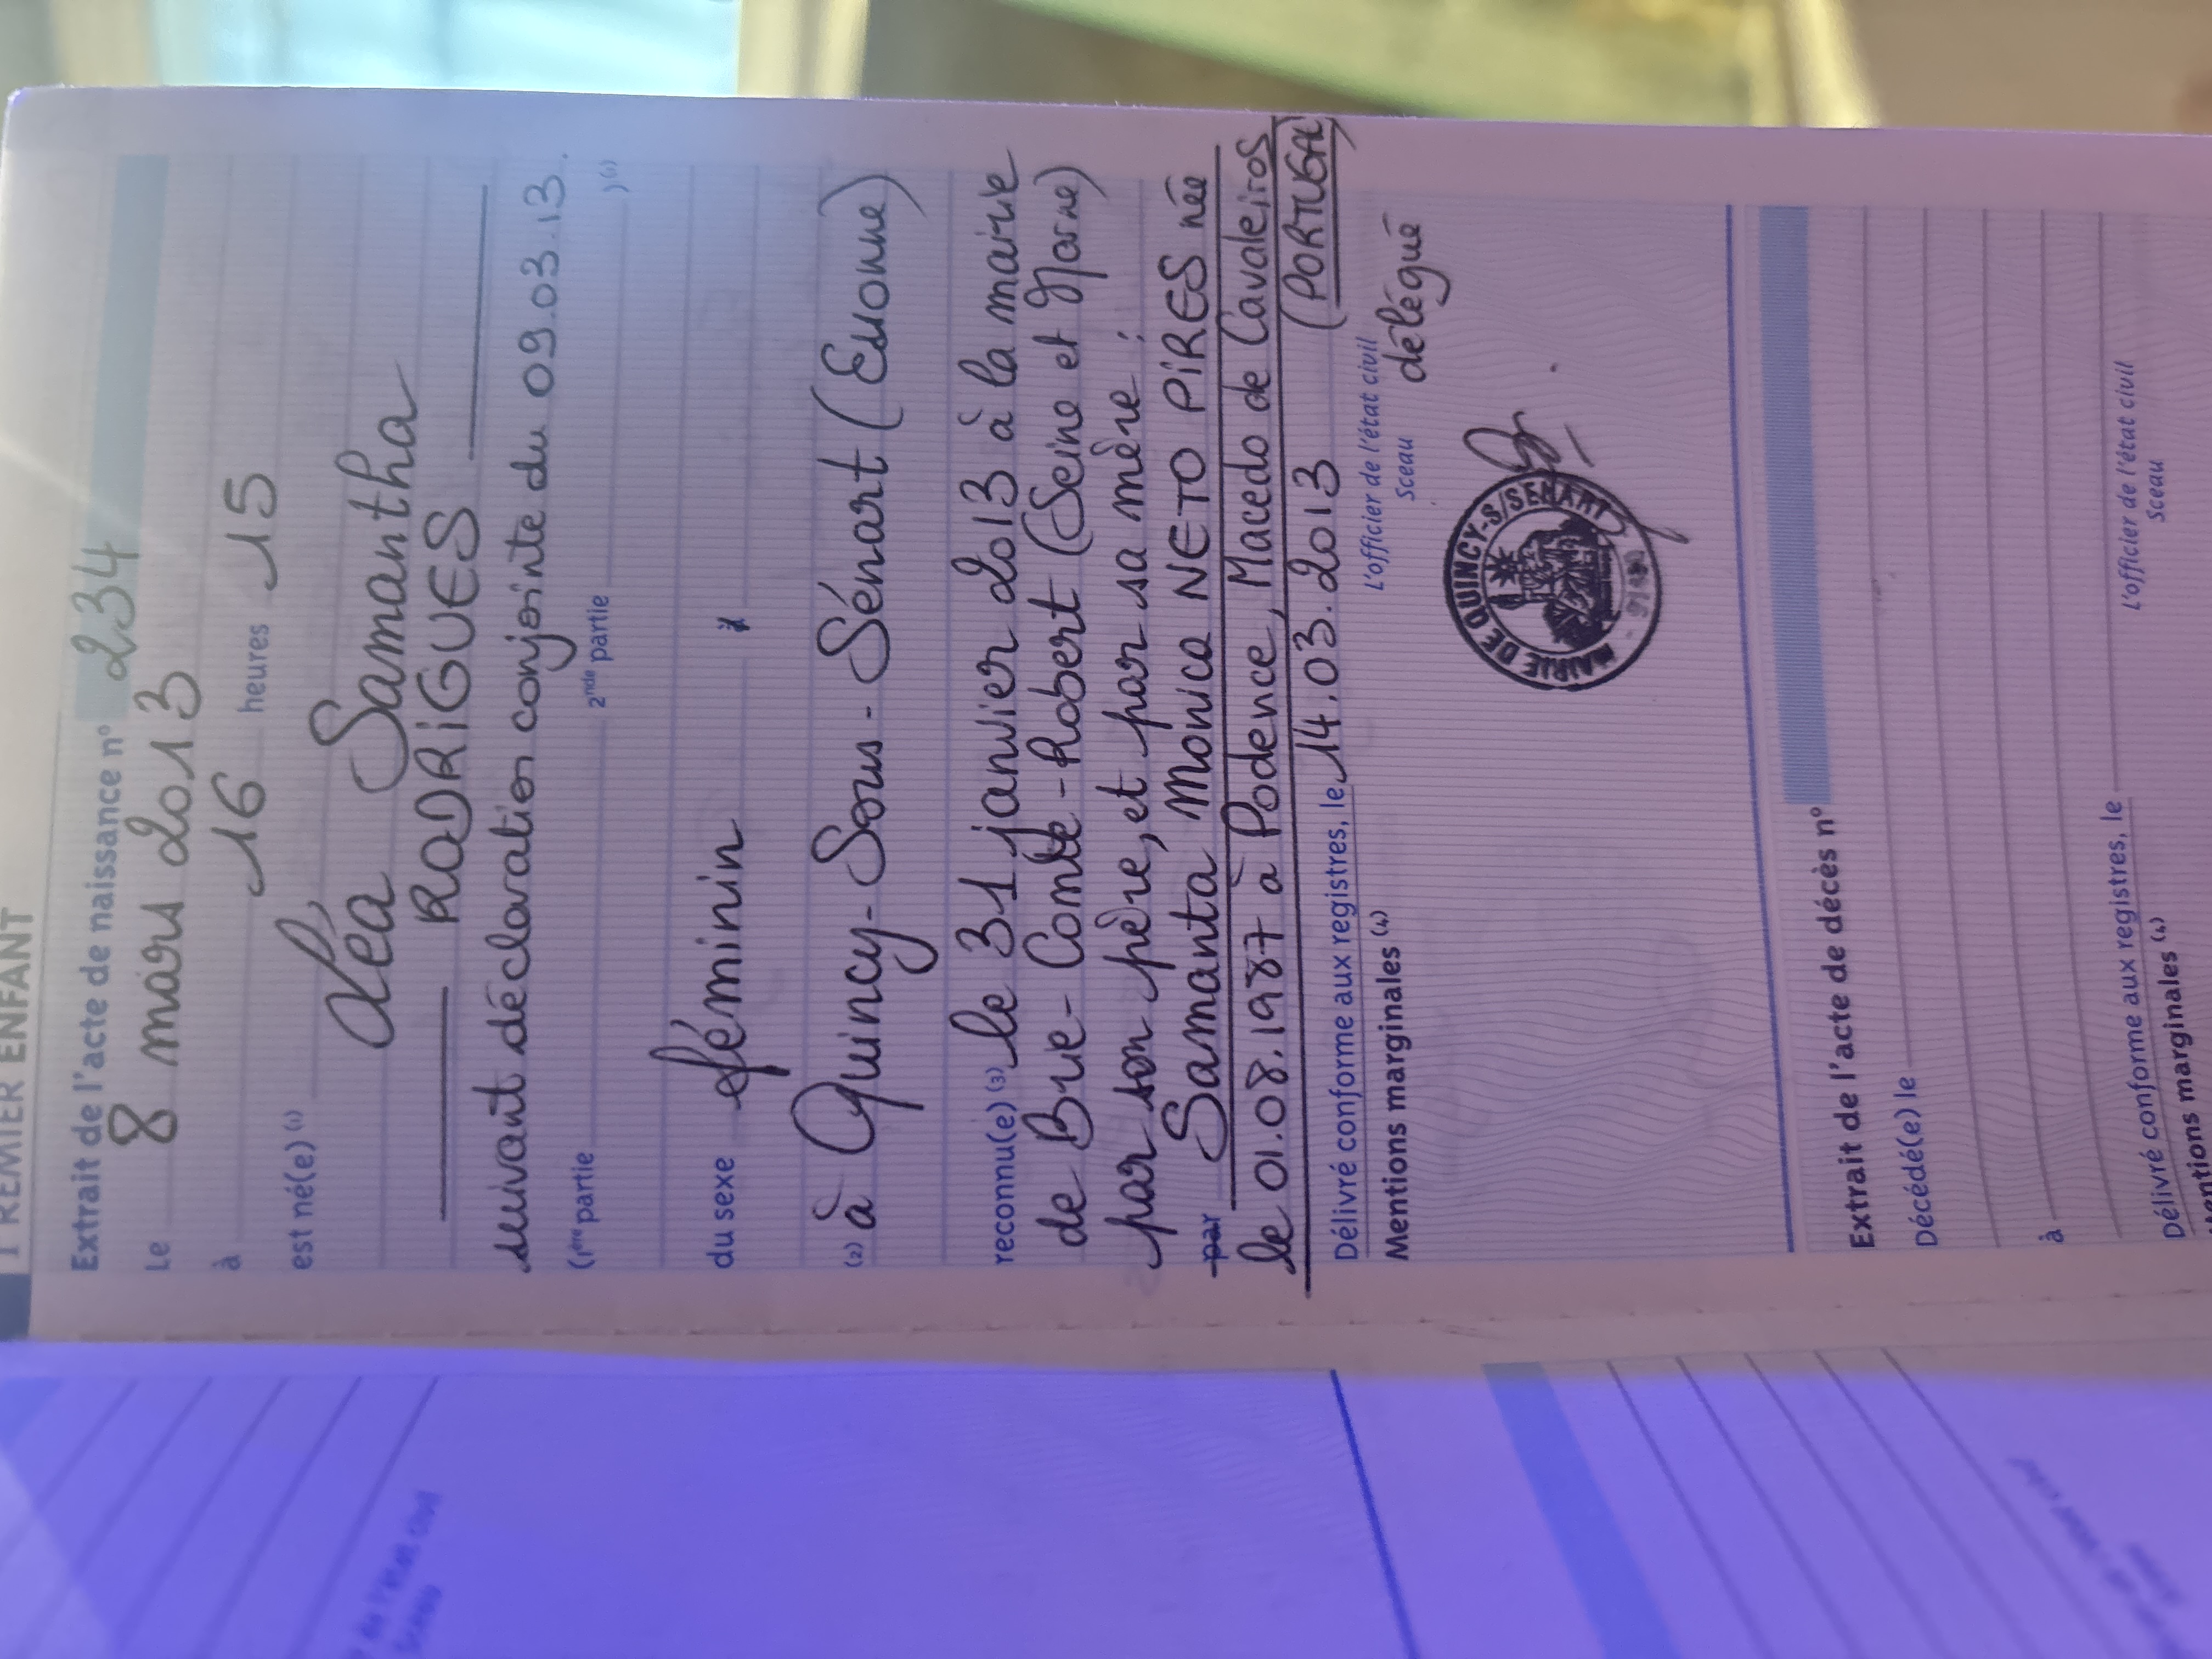 PREMIER ENFANT
Extrait de l'acte de naissance n° 234
Le 8 mars 2013
à 16 heures 15
est né(e) (1) Léa Samantha
RODRiGUES
suivant déclaration conjointe du 09.03.13.
(1ère partie 2nde partie )(1)
du sexe féminin
(2) à Quincy-Sous-Sénart (Essonne)
reconnu(e) (3) le 31 janvier 2013 à la mairie
de Brie-Comte-Robert (Seine et Marne)
par son père, et par sa mère :
par Samanta Monica NETO PiRES née
le 01.08.1987 à Podence, Macedo de Cavaleiros
(PORTUGAL)
Délivré conforme aux registres, le 14.03.2013
L'officier de l'état civil
délégué
Sceau
Mentions marginales (4)
MAIRIE DE QUINCY-S/SENART
Extrait de l'acte de décès n°
Décédé(e) le
à
Délivré conforme aux registres, le
L'officier de l'état civil
Sceau
Mentions marginales (4)